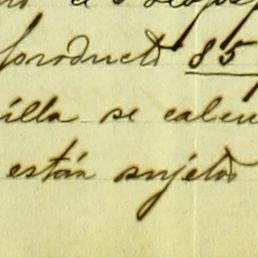 producto 85
illa se calcu
están sujetos